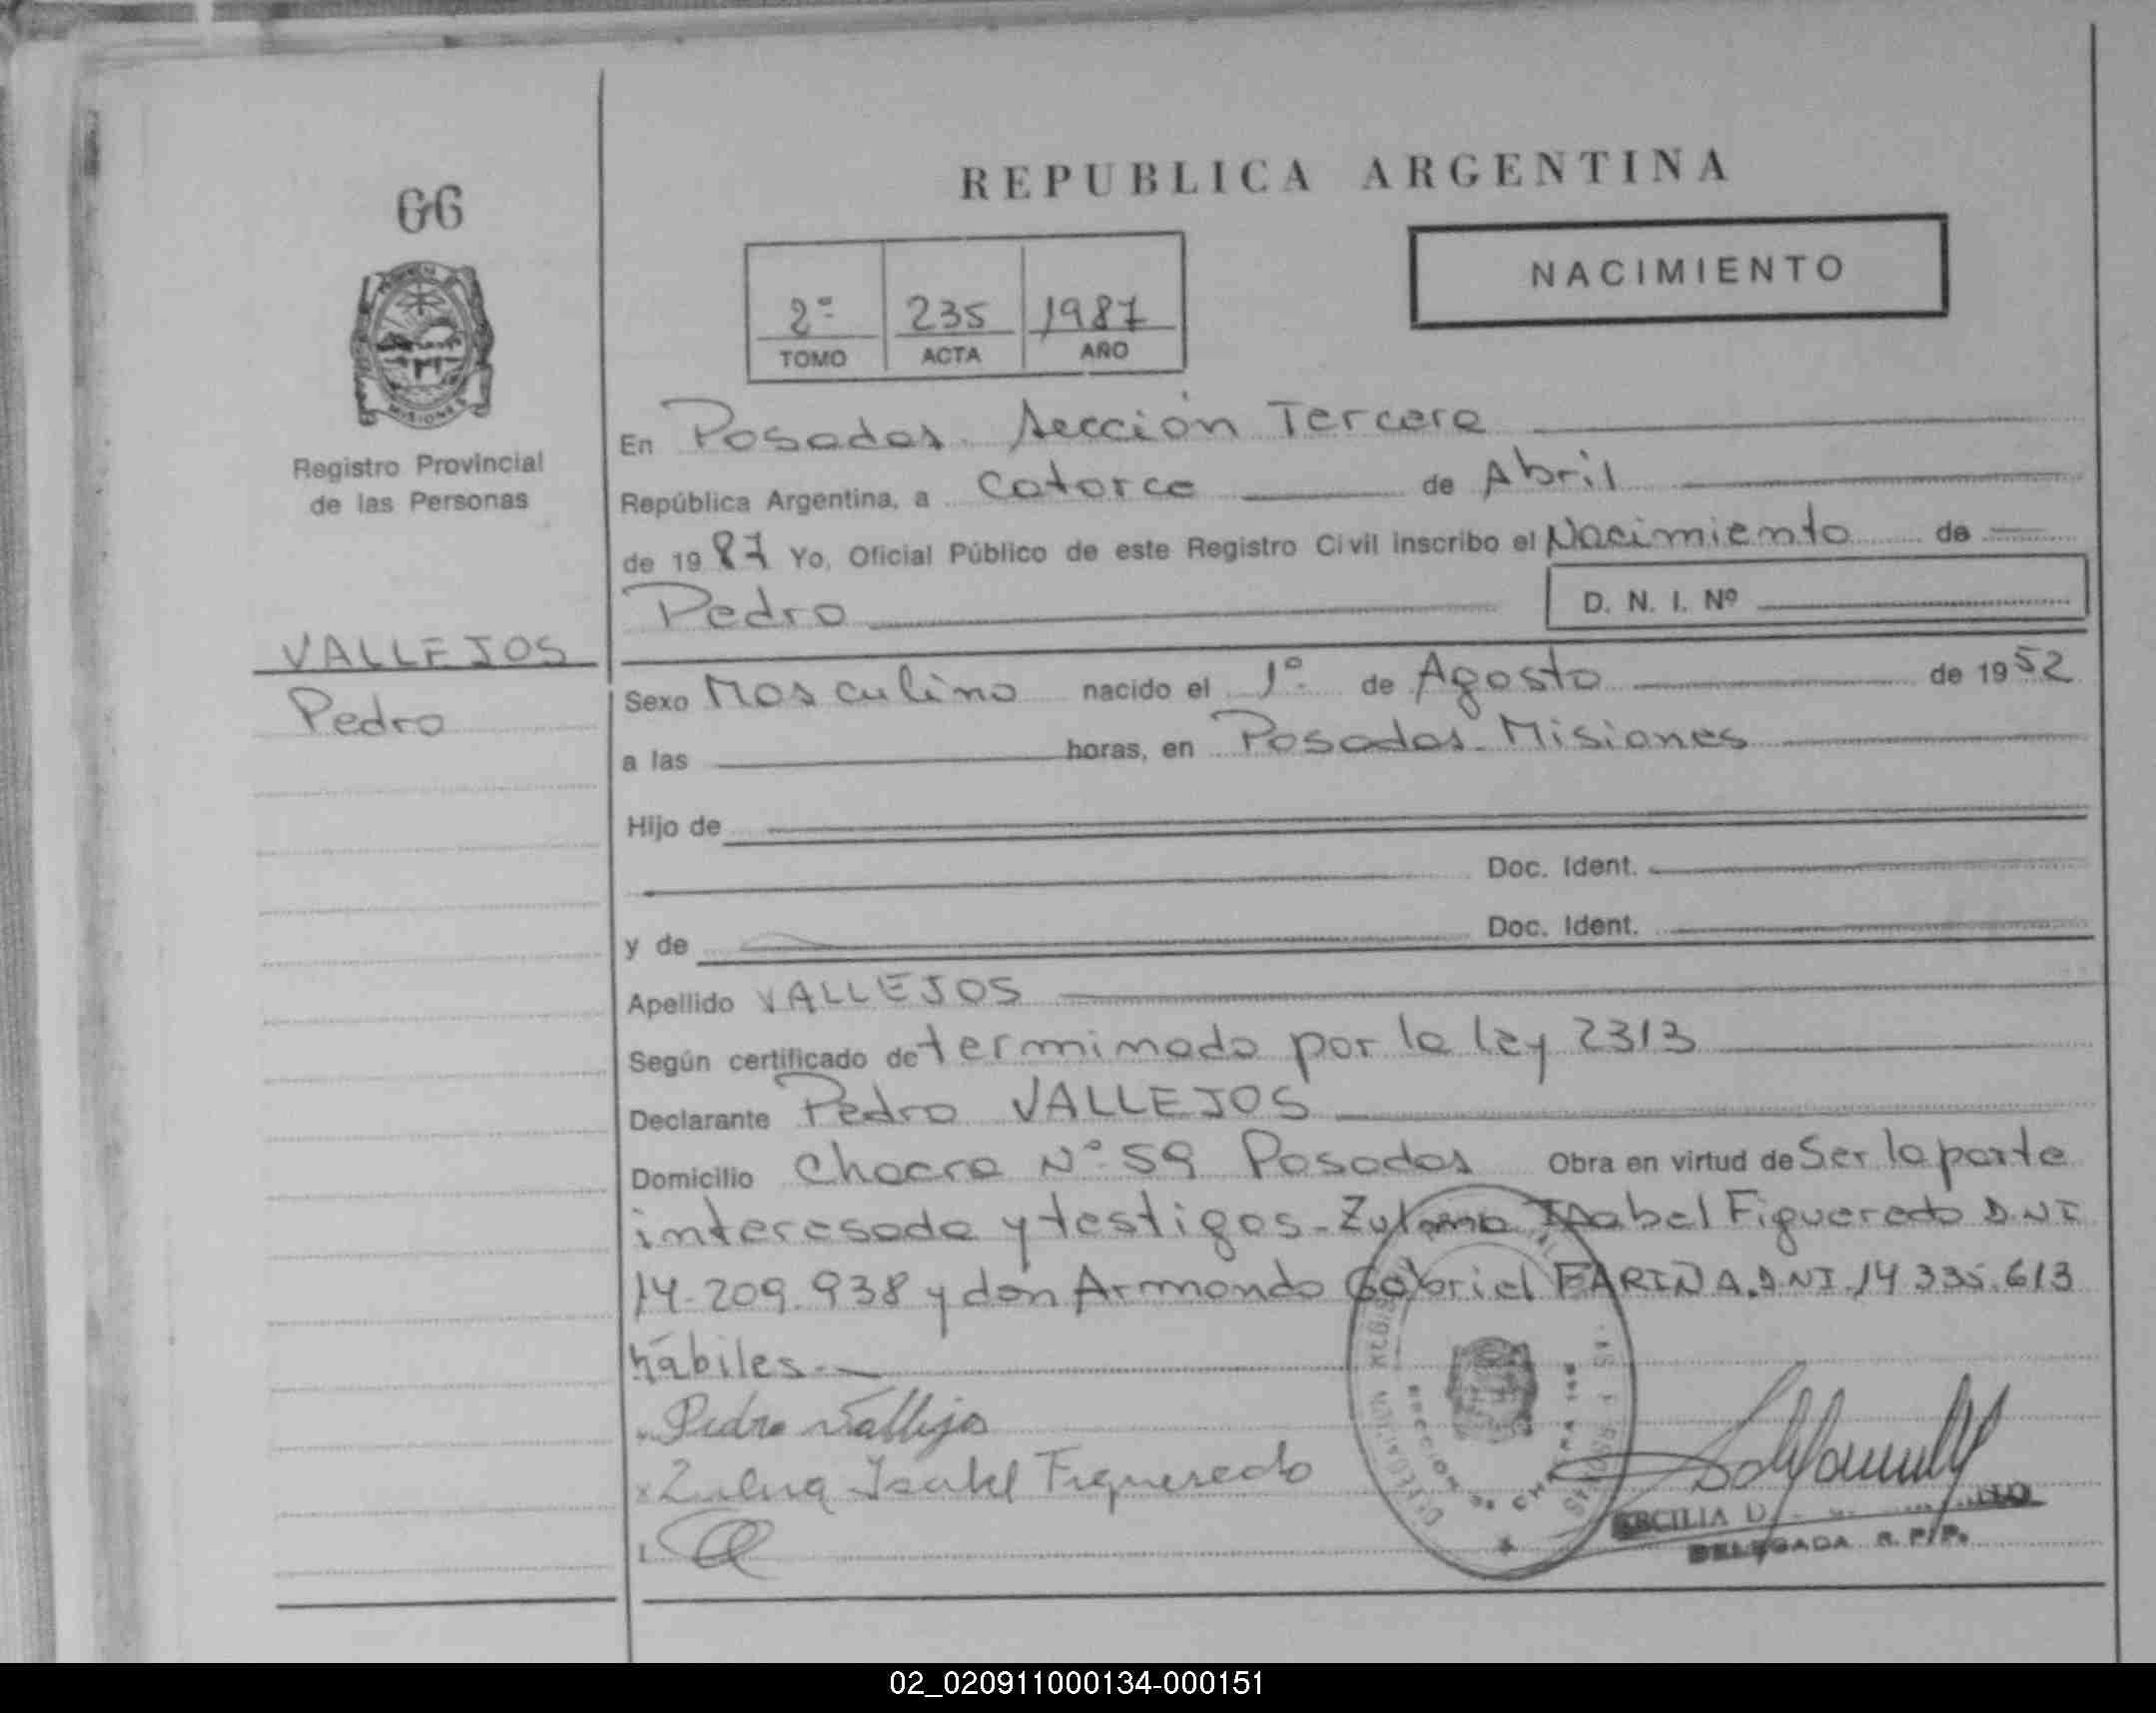 66
REPUBLICA ARGENTINA
NACIMIENTO
2º 235 1987
TOMO ACTA AÑO
Registro Provincial
de las Personas
En Posadas. Sección Tercera
República Argentina, a Catorce de Abril
de 1987 Yo, Oficial Público de este Registro Civil inscribo el Nacimiento de
Pedro D. N. I. Nº
VALLEJOS
Pedro
Sexo Masculino nacido el 1º de Agosto de 1952
a las horas, en Posadas. Misiones
Hijo de
Doc. Ident.
y de Doc. Ident.
Apellido VALLEJOS
Según certificado determinado por la ley 2313
Declarante Pedro VALLEJOS
Domicilio Chacra Nº 59 Posadas Obra en virtud de Ser la parte
interesada y testigos - Zulema Isabel Figueredo D.N.I
14.209.938 y don Armando Gabriel FARIÑA. D.N.I. 14.335.613
hábiles.-
Pedro Vallejos
Isabel Figueredo
DELEGADA R. P. P.
02_020911000134-000151